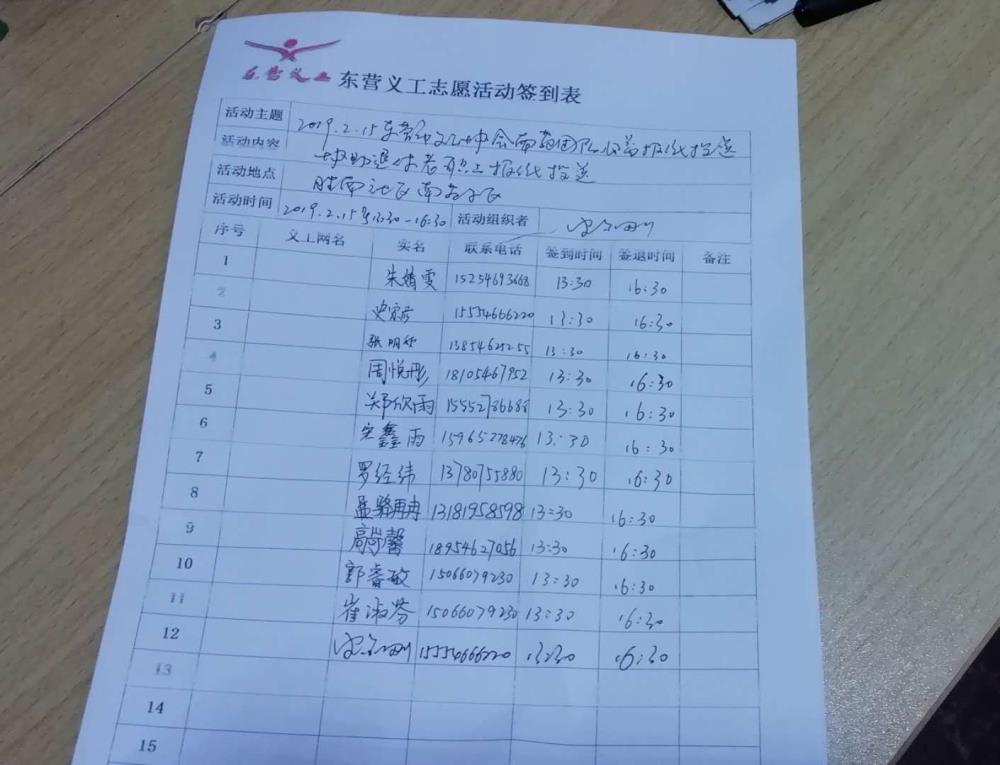 东营义工
东营义工志愿活动签到表
活动主题 2019.2.15东营市义工协会南苑团队公益报纸投送
活动内容 协助退休老职工报纸投送
活动地点 胜南社区南苑小区
活动时间 2019.2.15 13:30-16:30 活动组织者
序号 义工网名 实名 联系电话 签到时间 签退时间 备注
1 朱婧雯 15254693668 13:30 16:30
2 15554666220 13:30 16:30
3 张明 13854625255 13:30 16:30
4 周悦彤 18105467952 13:30 16:30
5 郑欣雨 15552786688 13:30 16:30
6 宋鑫雨 15965278476 13:30 16:30
7 罗经纬 13780755880 13:30 16:30
8 孟璐冉冉 13181958598 13:30 16:30
9 高馨 18954627056 13:30 16:30
10 郭睿敏 15066079230 13:30 16:30
11 崔淑芬 15066079230 13:30 16:30
12 15554666220 13:30 16:30
13
14
15